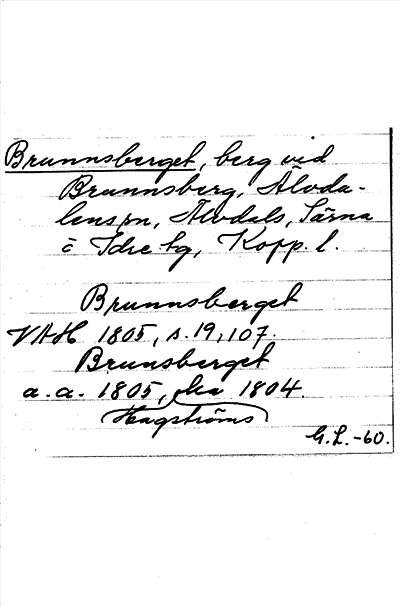 Brunnsberget, berg vid
Brunnsberg, Älvda-
lens sn, Älvdals, Särna
o Idre tg, Kopp. l.
Brunnsberget
VAH 1805, s. 19, 107.
Brunsberget
a. a. 1805, 1804.
Hagströms
G. L. -60.